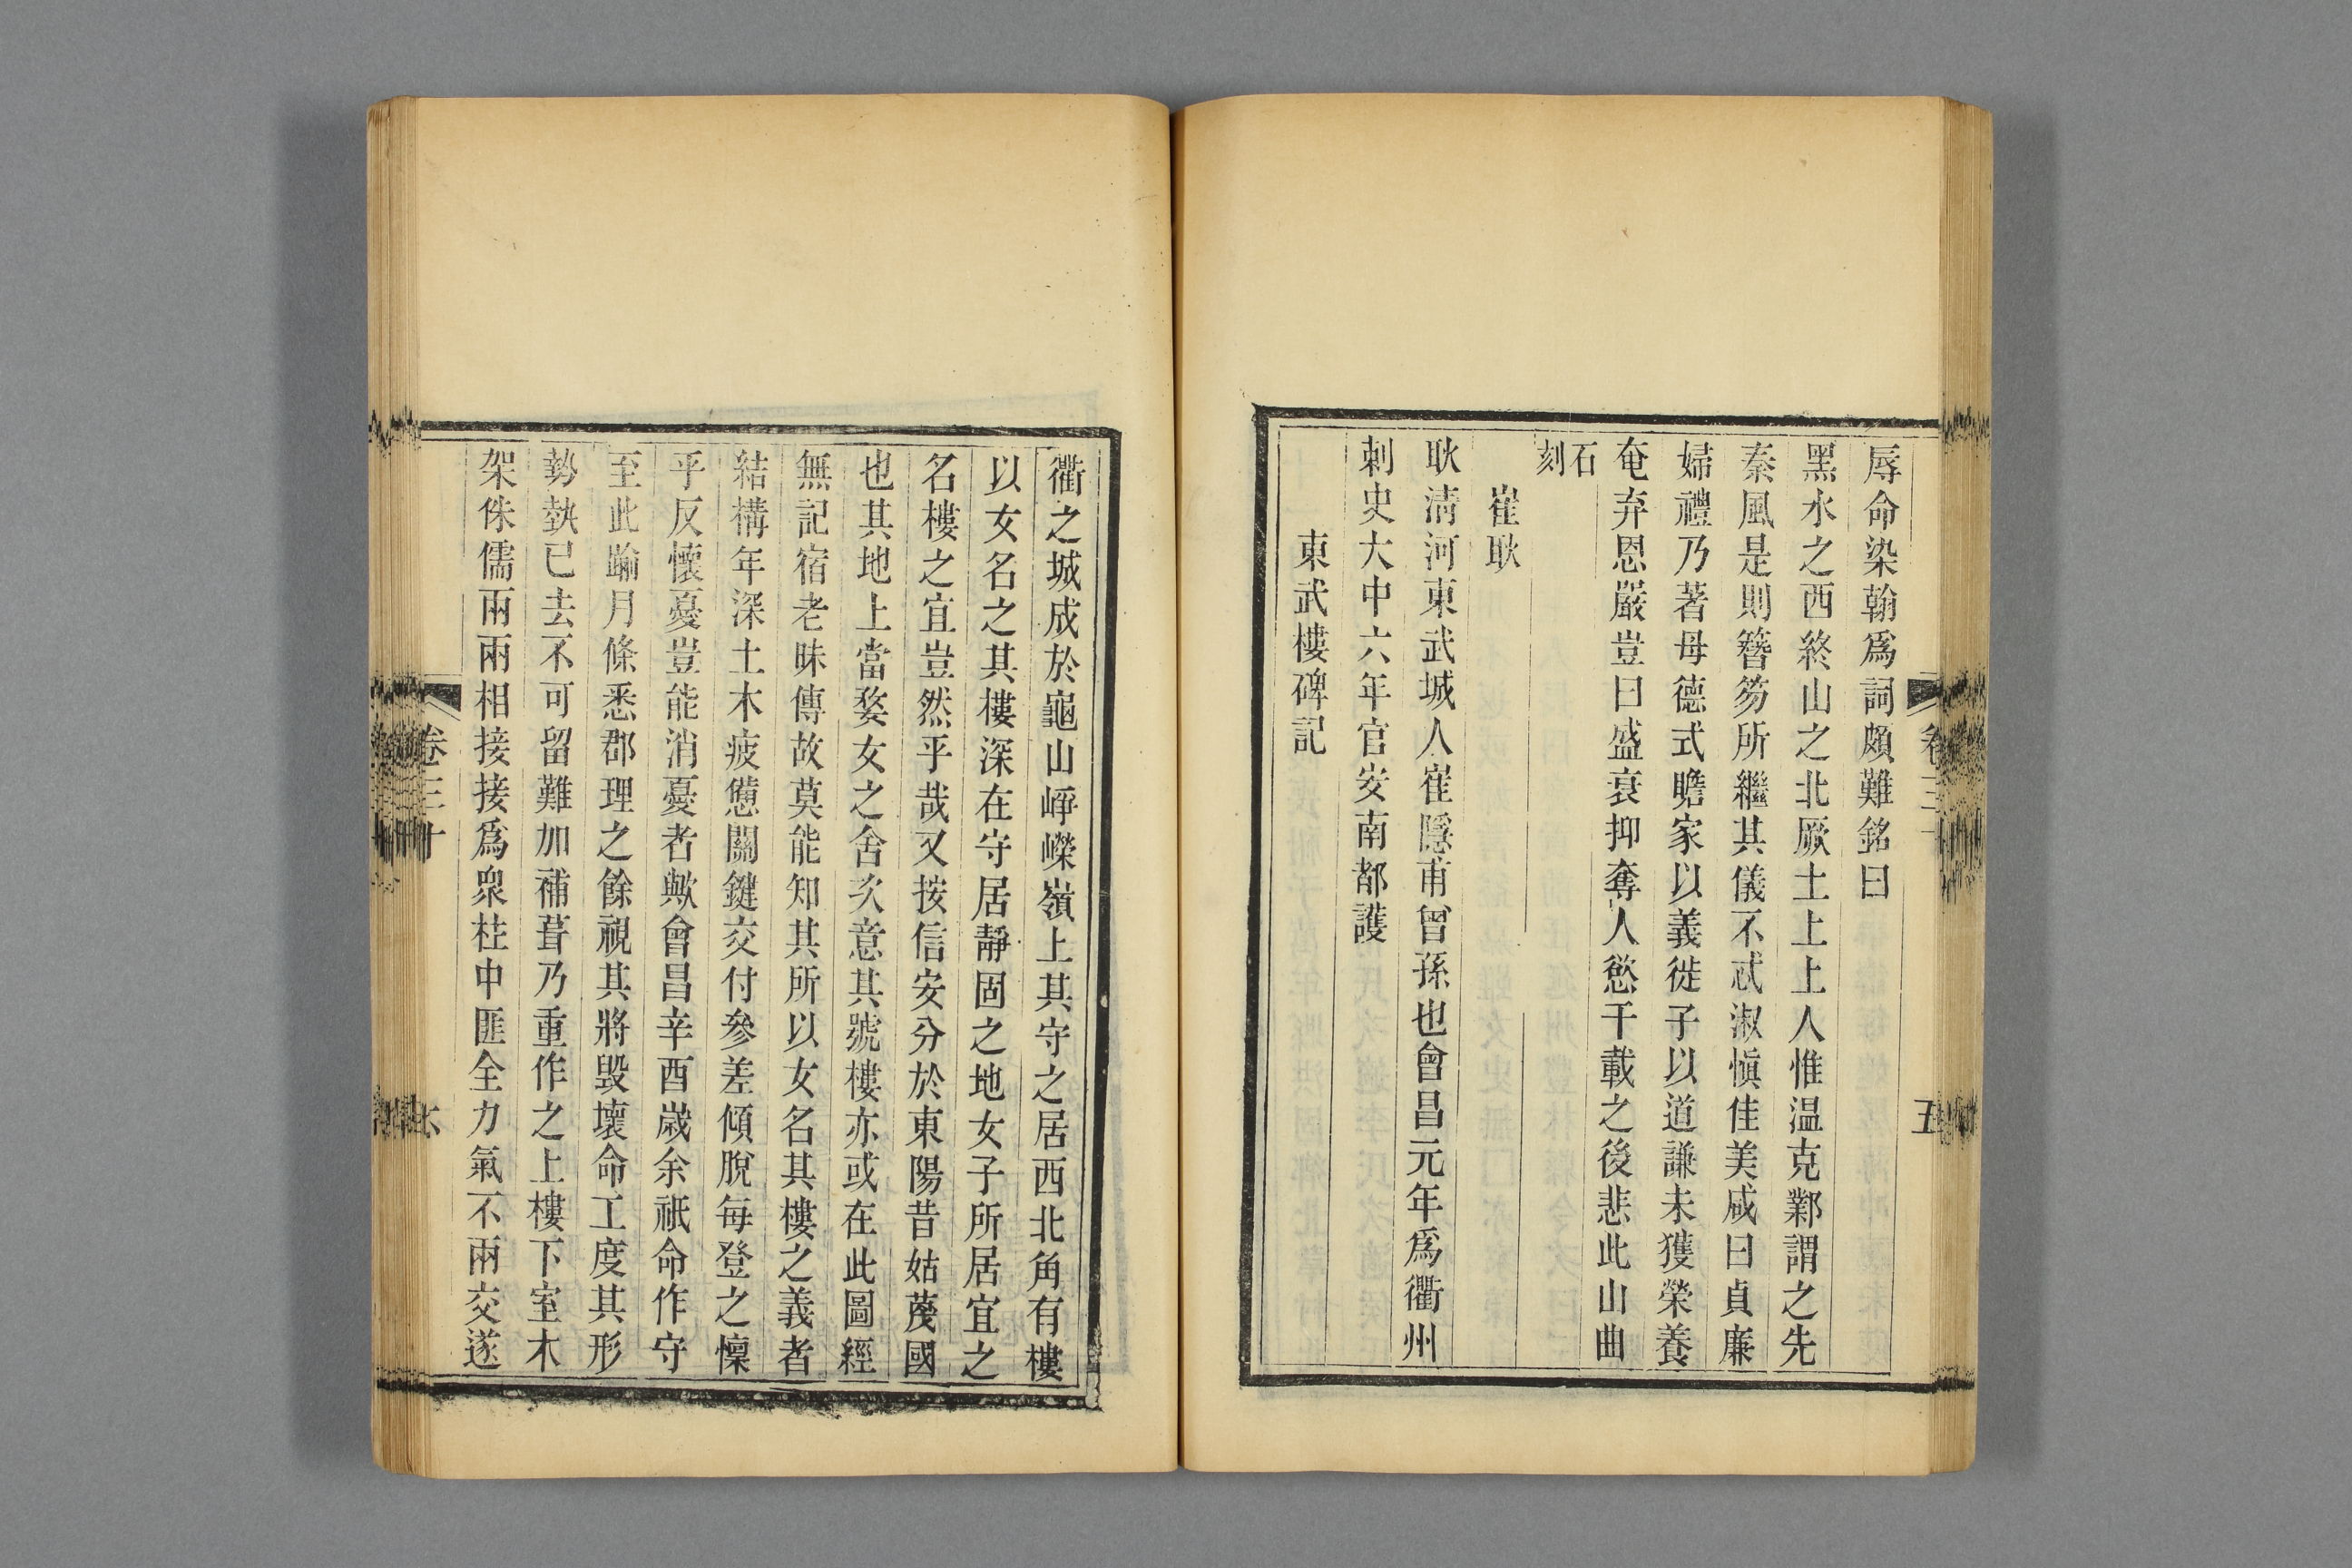 辱命染翰爲詞頗難銘曰
黑水之西終山之北厥土上上人惟温克鄴謂之先
秦風是則簪笏所繼其儀不忒淑愼佳美咸曰貞廉
婦禮乃著母德式瞻家以義徙子以道謙未獲榮養
奄弃恩嚴豈曰盛衰抑奪人慾千載之後悲此山曲
石刻
崔耿
耿淸河東武城人崔隱甫曾孫也會昌元年爲衢州
刺史大中六年官安南都護
東武樓碑記
五
衢之城成於龜山崢嶸嶺上其守之居西北角有樓
以女名之其樓深在守居靜固之地女子所居宜之
名樓之宜豈然乎哉又按信安分於東陽昔姑蔑國
也其地上當婺女之舍次意其號樓亦或在此圖經
無記宿老昧傳故莫能知其所以女名其樓之義者
結構年深土木疲憊關鍵交付參差傾脫每登之懍
乎反懷憂豈能消憂者歟會昌辛酉歲余祇命作守
至此踰月條悉郡理之餘視其將毀壞命工度其形
勢埶已去不可留難加補葺乃重作之上樓下室木
架侏儒兩兩相接接爲衆柱中匪全力氣不兩交遂
卷三十
六